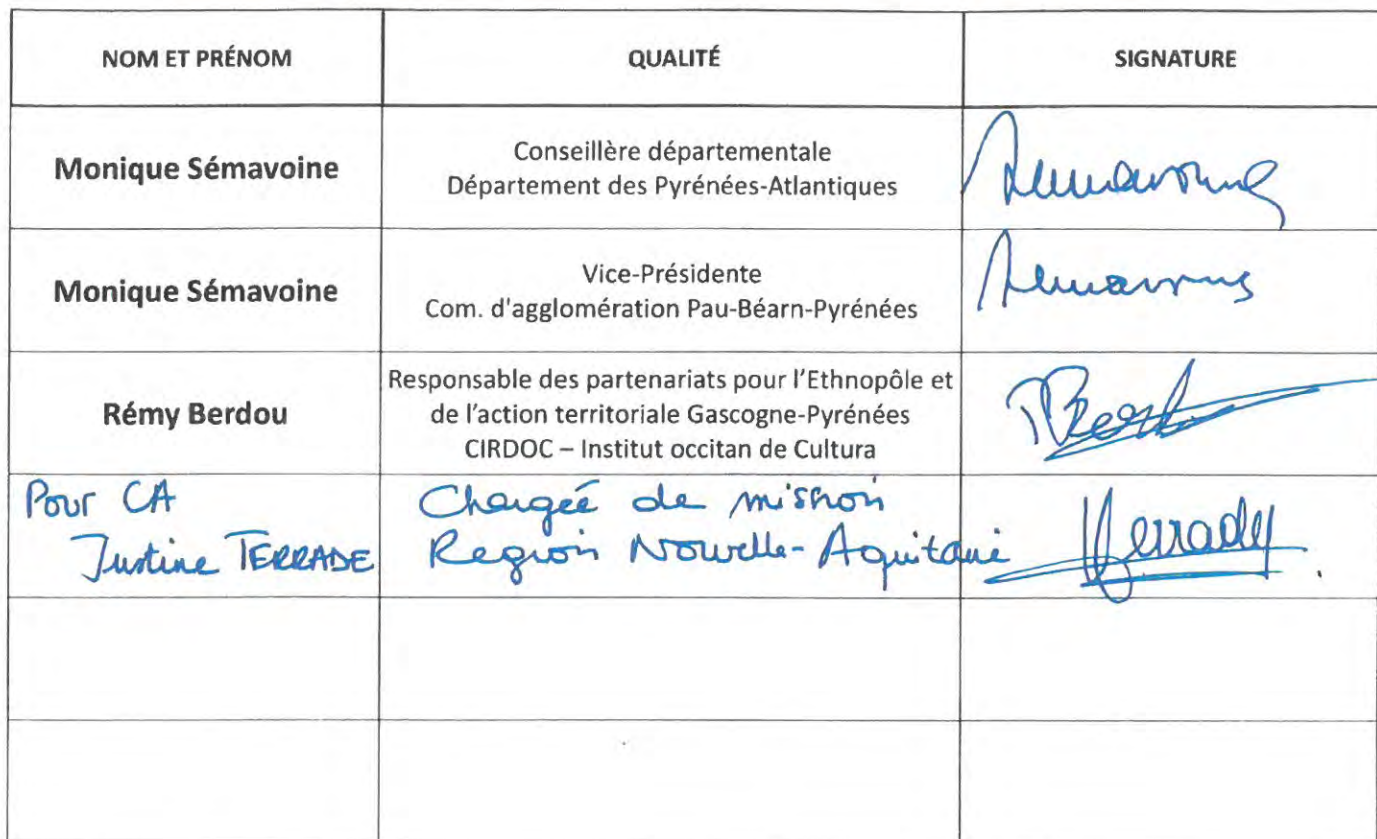 NOM ET PRÉNOM
QUALITÉ
SIGNATURE
Monique Sémavoine
Conseillère départementale
Département des Pyrénées-Atlantiques
Monique Sémavoine
Vice-Présidente
Com. d'agglomération Pau-Béarn-Pyrénées
Rémy Berdou
Responsable des partenariats pour l'Ethnopôle et
de l'action territoriale Gascogne-Pyrénées
CIRDOC – Institut occitan de Cultura
Pour CA
Justine TERRADE
Chargée de mission
Region Nouvelle-Aquitaine